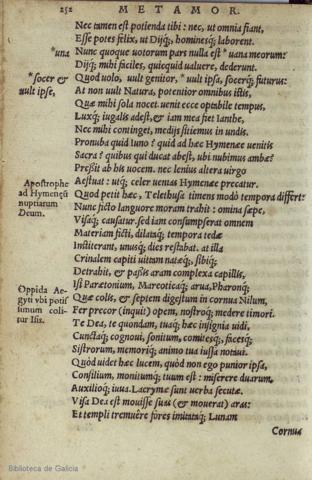 252 METAMOR.
Nec tamen est potienda tibi: nec, ut omnia fiant,
Esse potes felix, ut Dijq́; hominesq́; laborent.
*una Nunc quoque uotorum pars nulla est *uana meorum:
Dijq́; mihi faciles, quicquid ualuere, dederunt.
*socer & Quod uolo, uult genitor, *uult ipsa, socerq́; futurus:
uult ipse, At non uult Natura, potentior omnibus istis,
Quæ mihi sola nocet. uenit ecce optabile tempus,
Luxq́; iugalis adest, & iam mea fiet Ianthe,
Nec mihi continget, medijs sitiemus in undis.
Pronuba quid Iuno? quid ad hæc Hymenæe uenitis
Sacra? quibus qui ducat abest, ubi nubimus ambæ?
Pressit ab his uocem. nec lenius altera uirgo
Apostrophe Aestuat: utq́; celer uenias Hymenæe precatur.
ad Hymenęũ Quod petit hæc, Telethusa timens modò tempora differt:
nuptiarum Nunc ficto languore moram trahit: omina sæpe,
Deum. Visaq́; causatur. sed iam consumpserat omnem
Materiam ficti, dilataq́; tempora tedæ
Institerant, unusq́; dies restabat. at illa
Crinalem capiti uittam natæq́; sibiq́;
Detrahit, & passis aram complexa capillis,
Oppida Ae- Isi Parætonium, Mareoticaq́; arua, Pharonq́;
gyti vbi potiſ Quæ colis, & septem digestum in cornua Nilum,
simum coli- Fer precor (inquit) opem, nostroq́; medere timori.
tur Isis. Te Dea, te quondam, tuaq́; hæc insignia uidi,
Cunctaq́; cognoui, sonitum, comitesq́;, facesq́;
Sistrorum, memoriq́; animo tua iussa notaui.
Quòd uidet hæc lucem, quòd non ego punior ipsa,
Consilium, monitumq́; tuum est: miserere duarum,
Auxilioq́; iuua. Lacrymæ sunt uerba secutæ.
Visa Dea est mouisse suas (& mouerat) aras:
Et templi tremuêre fores imitataq́; Lunam
Cornua
Biblioteca de Galicia